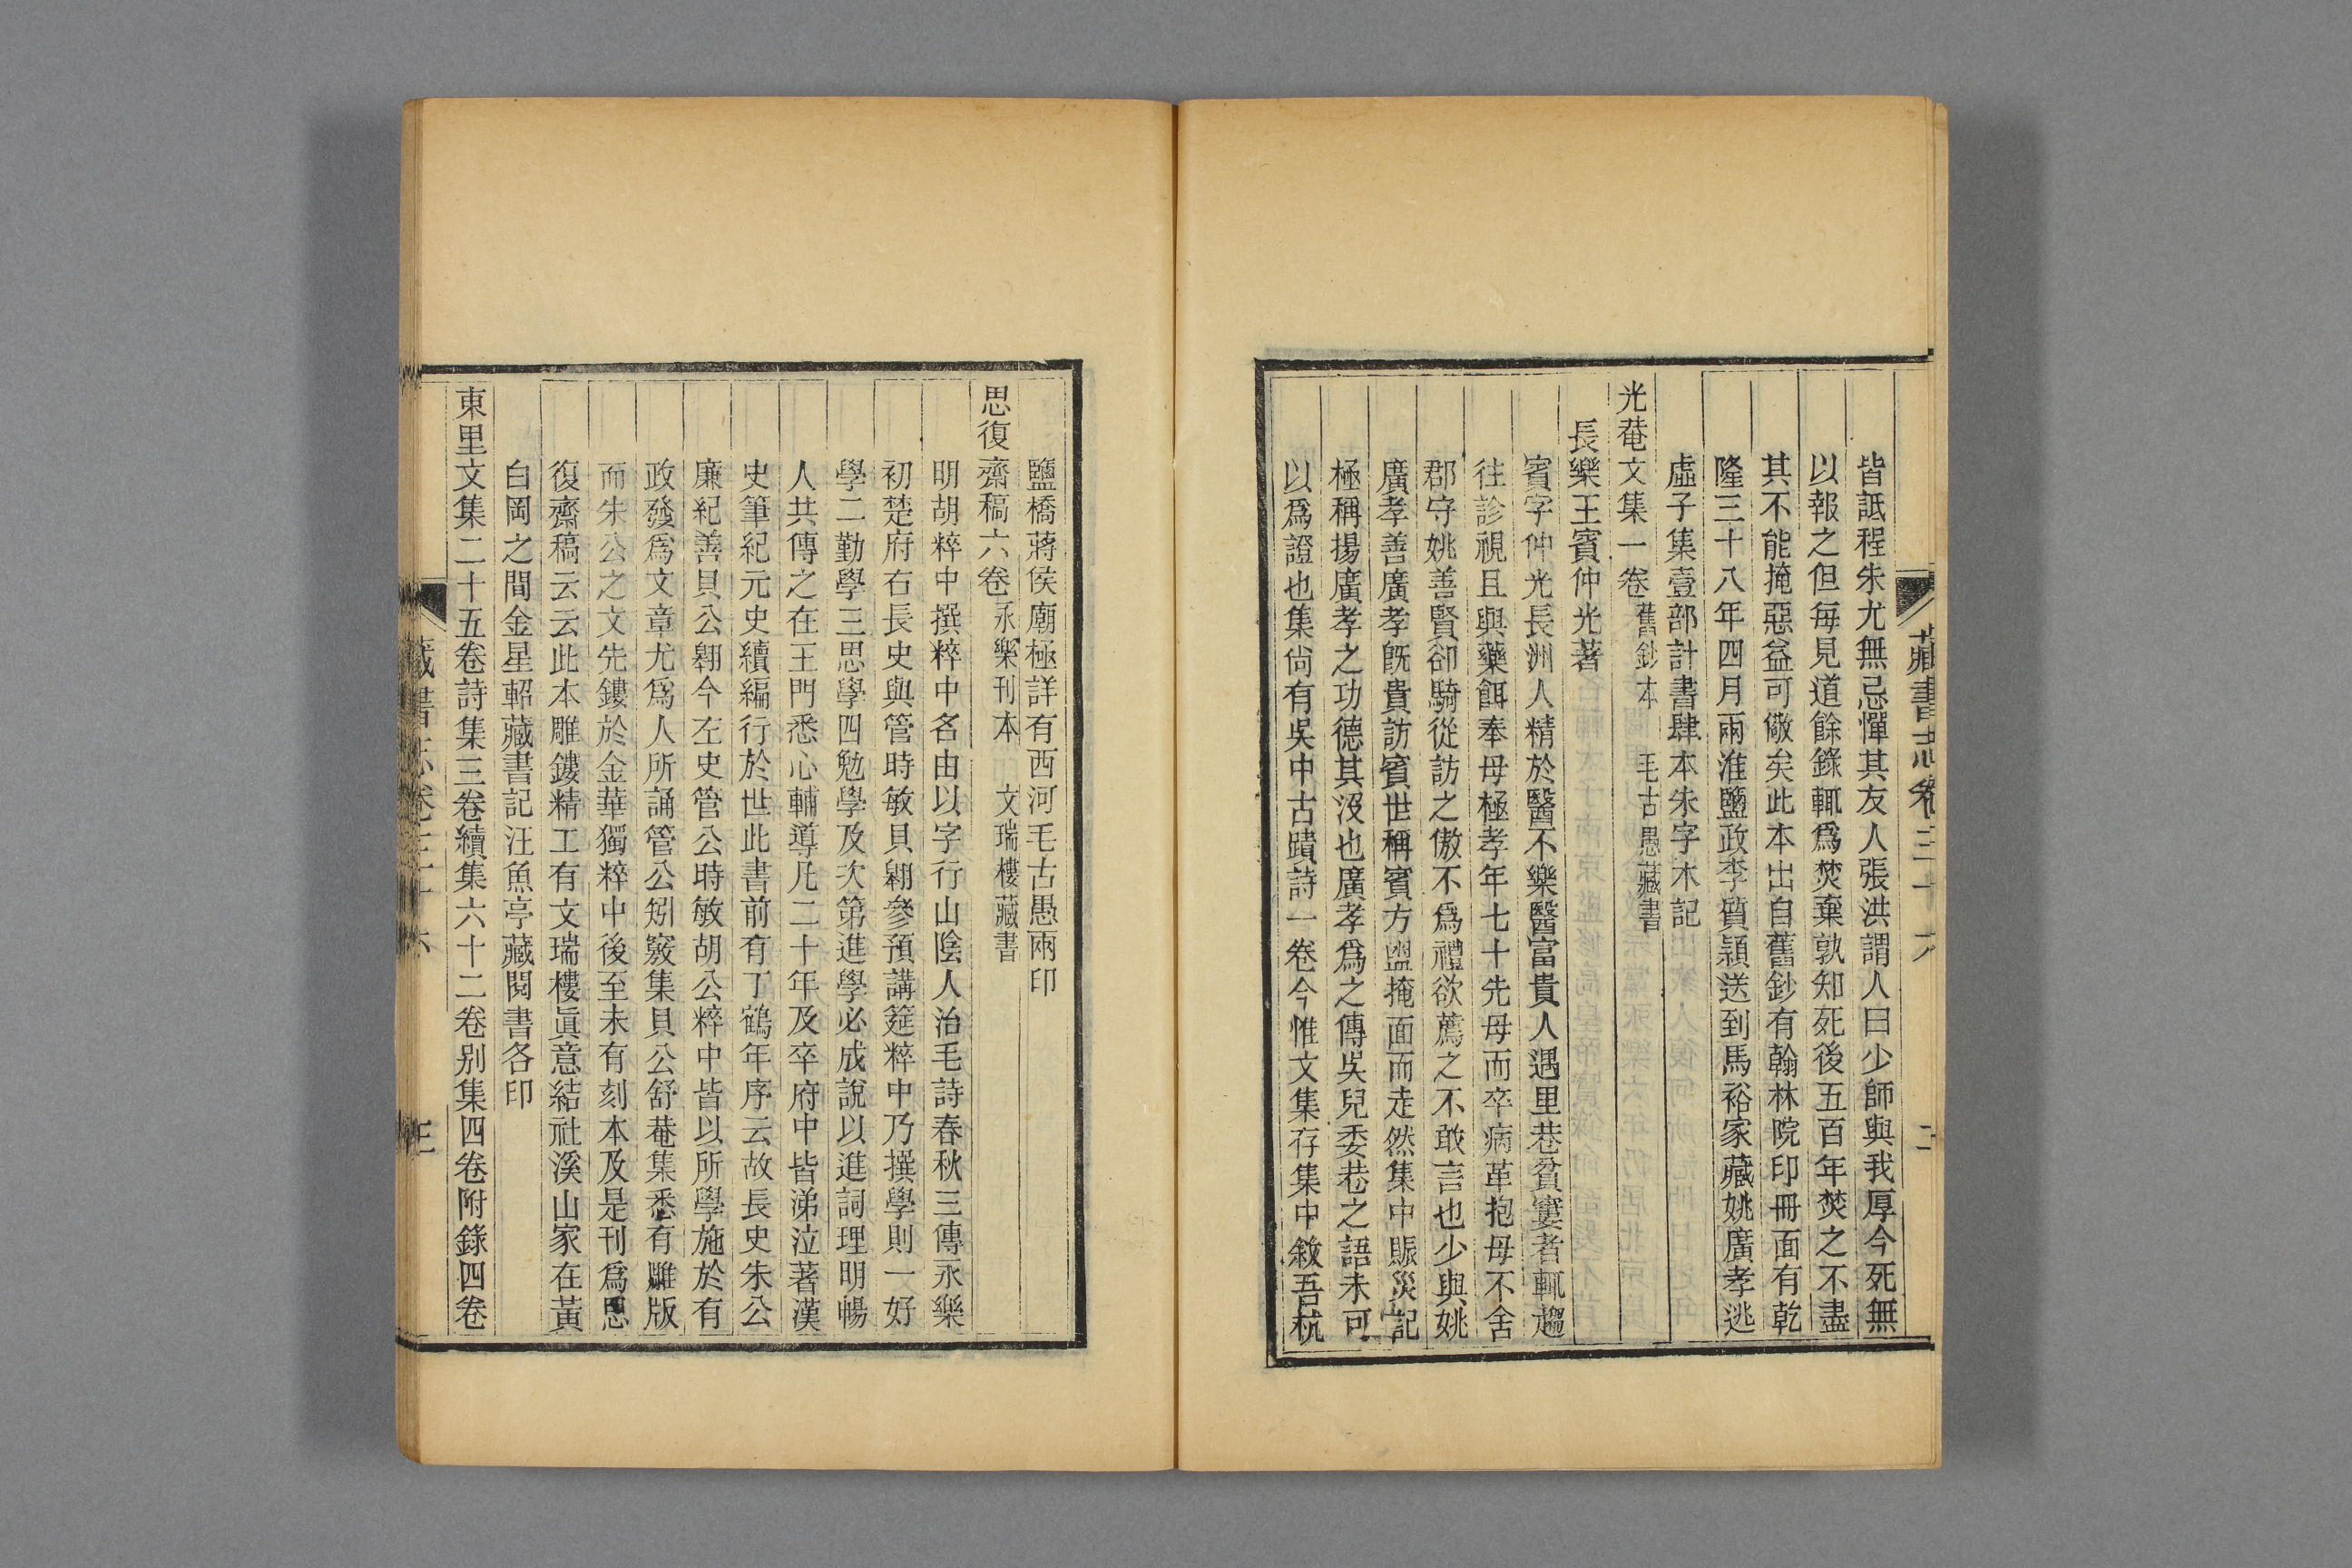 藏書志卷三十六 二
皆詆程朱尤無忌憚其友人張洪謂人曰少師與我厚今死無
以報之但每見道餘錄輒爲焚棄孰知死後五百年焚之不盡
其不能掩惡益可儆矣此本出自舊鈔有翰林院印冊面有乾
隆三十八年四月兩淮鹽政李質穎送到馬裕家藏姚廣孝逃
虛子集壹部計書肆本朱字木記
光菴文集一卷 舊鈔本 毛古愚藏書
長樂王賓仲光著
賓字仲光長洲人精於醫不樂醫富貴人遇里巷貧窶者輒趨
往診視且與藥餌奉母極孝年七十先母而卒病革抱母不舍
郡守姚善賢卻騎從訪之傲不爲禮欲薦之不敢言也少與姚
廣孝善廣孝旣貴訪賓世稱賓方盥掩面而走然集中賑災記
極稱揚廣孝之功德其沒也廣孝爲之傳吳兒委巷之語未可
以爲證也集尙有吳中古蹟詩一卷今惟文集存集中敘吾杭
鹽橋蔣侯廟極詳有西河毛古愚兩印
思復齋稿六卷 永樂刊本 文瑞樓藏書
明胡粹中撰粹中名由以字行山陰人治毛詩春秋三傳永樂
初楚府右長史與管時敏貝翱參預講筵粹中乃撰學則一好
學二勤學三思學四勉學及次第進學必成說以進詞理明暢
人共傳之在王門悉心輔導凡二十年及卒府中皆涕泣著漢
史筆紀元史續編行於世此書前有丁鶴年序云故長史朱公
廉紀善貝公翱今左史管公時敏胡公粹中皆以所學施於有
政發爲文章尤爲人所誦管公蚓竅集貝公舒菴集悉有雕版
而朱公之文先鏤於金華獨粹中後至未有刻本及是刊爲思
復齋稿云云此本雕鏤精工有文瑞樓眞意結社溪山家在黃
白岡之間金星軺藏書記汪魚亭藏閱書各印
東里文集二十五卷詩集三卷續集六十二卷別集四卷附錄四卷
藏書志卷三十六 三